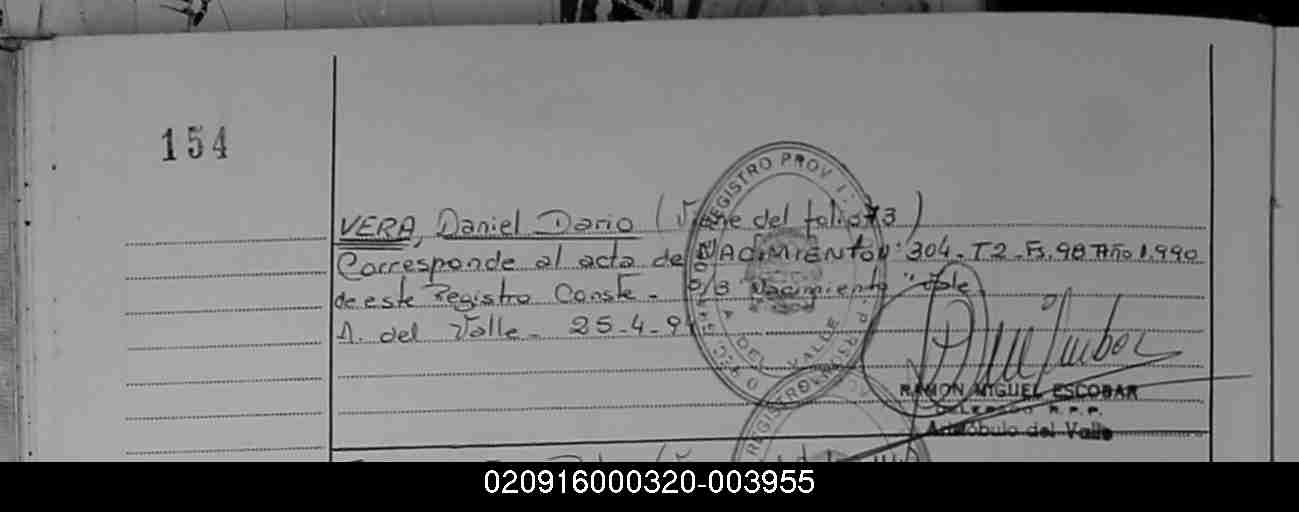 154
VERA, Daniel Dario (Viene del folio 73)
Corresponde al acta de NACIMIENTO Nº: 304. T 2. Fs. 98 Año 1.990
de este Registro Conste - S/B Nacimiento "Vale
A. del Valle - 25-4-9
REGISTRO PROV
DEL VALLE
RAMON MIGUEL ESCOBAR
DELEGADO R.P.P.
Aristóbulo del Valle
REGISTRO
020916000320-003955